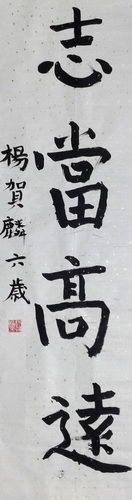 志當高遠
楊賀麟六歲